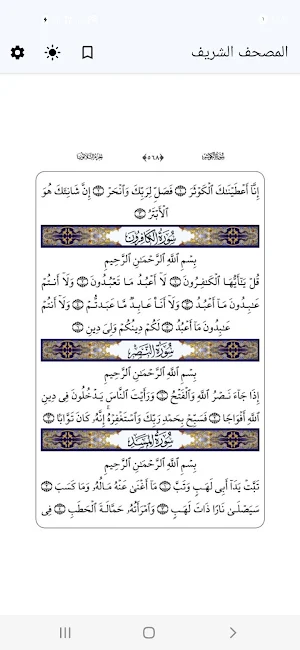 المصحف الشريف
سورة الكوثر
﴿٥٦٨﴾
الجزء الثلاثون
إِنَّآ أَعْطَيْنَٰكَ ٱلْكَوْثَرَ ١ فَصَلِّ لِرَبِّكَ وَٱنْحَرْ ٢ إِنَّ شَانِئَكَ هُوَ
ٱلْأَبْتَرُ ٣
سُورَةُ الكَافِرُونَ
بِسْمِ ٱللَّهِ ٱلرَّحْمَٰنِ ٱلرَّحِيمِ
قُلْ يَٰٓأَيُّهَا ٱلْكَٰفِرُونَ ١ لَآ أَعْبُدُ مَا تَعْبُدُونَ ٢ وَلَآ أَنتُمْ
عَٰبِدُونَ مَآ أَعْبُدُ ٣ وَلَآ أَنَا۠ عَابِدٌ مَّا عَبَدتُّمْ ٤ وَلَآ أَنتُمْ
عَٰبِدُونَ مَآ أَعْبُدُ ٥ لَكُمْ دِينُكُمْ وَلِىَ دِينِ ٦
سُورَةُ النَّصْرِ
بِسْمِ ٱللَّهِ ٱلرَّحْمَٰنِ ٱلرَّحِيمِ
إِذَا جَآءَ نَصْرُ ٱللَّهِ وَٱلْفَتْحُ ١ وَرَأَيْتَ ٱلنَّاسَ يَدْخُلُونَ فِى دِينِ
ٱللَّهِ أَفْوَاجًا ٢ فَسَبِّحْ بِحَمْدِ رَبِّكَ وَٱسْتَغْفِرْهُ إِنَّهُۥ كَانَ تَوَّابًۢا ٣
سُورَةُ المَسَدِ
بِسْمِ ٱللَّهِ ٱلرَّحْمَٰنِ ٱلرَّحِيمِ
تَبَّتْ يَدَآ أَبِى لَهَبٍ وَتَبَّ ١ مَآ أَغْنَىٰ عَنْهُ مَالُهُۥ وَمَا كَسَبَ ٢
سَيَصْلَىٰ نَارًا ذَاتَ لَهَبٍ ٣ وَٱمْرَأَتُهُۥ حَمَّالَةَ ٱلْحَطَبِ ٤ فِى